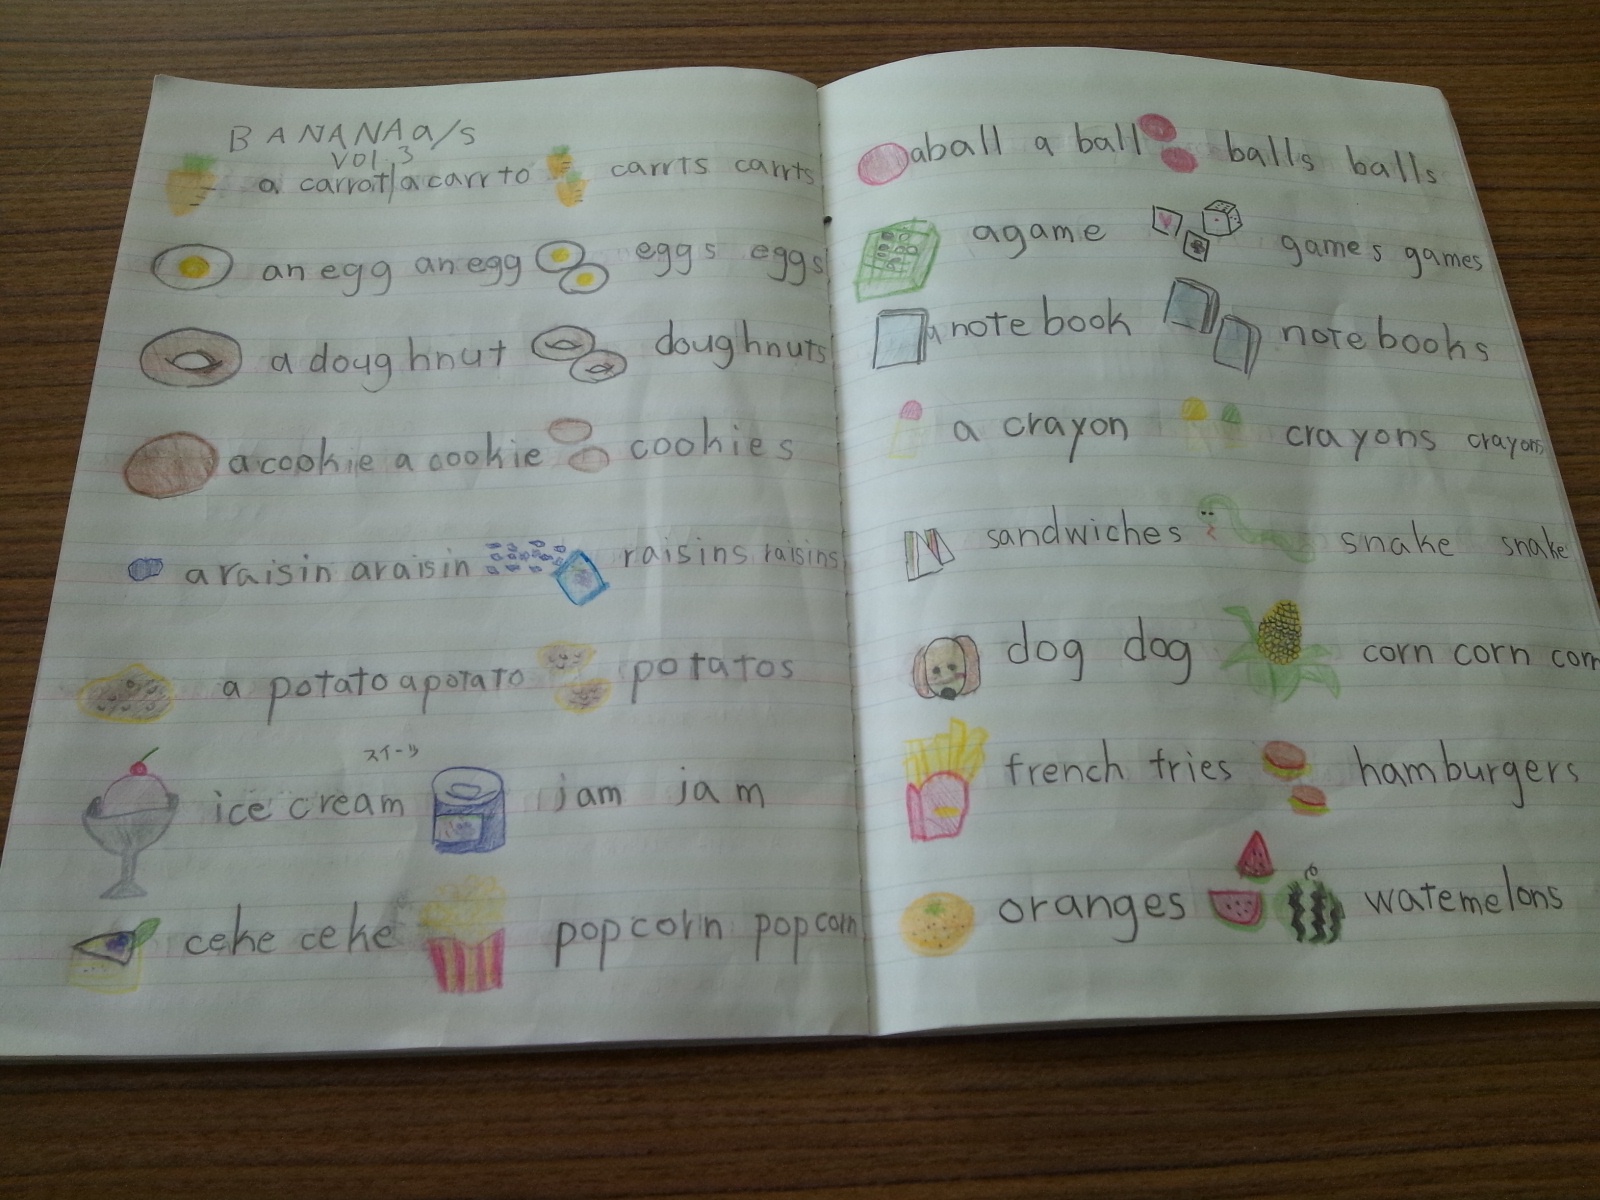 BANANA a/s
vol 3
a carrot/a carrto carrts carrts
an egg an egg eggs eggs
a doughnut doughnuts
a cookie a cookie cookies
a raisin a raisin raisins raisins
a potato a potato potatos
スイーツ
ice cream jam jam
ceke ceke popcorn popcorn
aball a ball balls balls
agame games games
a note book note books
a crayon crayons crayons
sandwiches snake snake
dog dog corn corn corn
french fries hamburgers
oranges watemelons